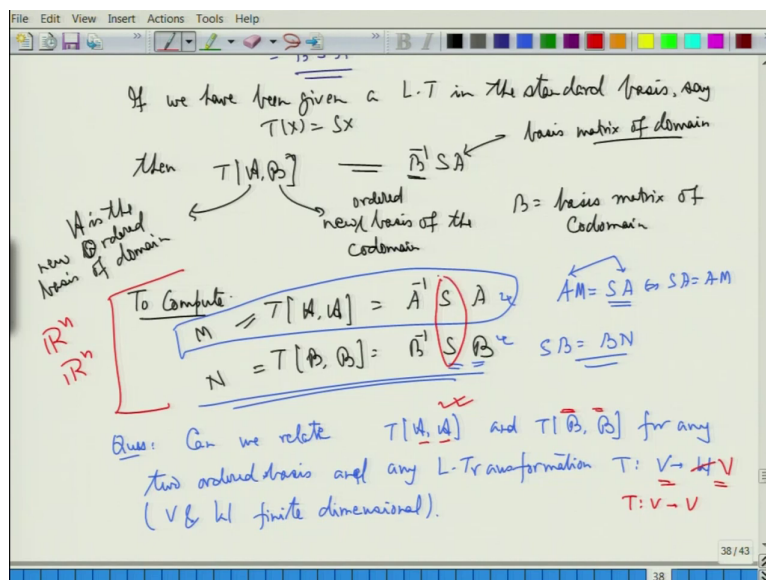 File Edit View Insert Actions Tools Help
If we have been given a L.T in the standard basis, say
T(x) = Sx
then T[A, B] = B⁻¹SA
basis matrix of domain
A is the new ordered basis of domain
ordered new basis of the codomain
B = basis matrix of Codomain
To Compute:
M = T[A, A] = A⁻¹ S A
AM = SA ⇔ SA = AM
N = T[B, B] = B⁻¹ S B
SB = BN
ℝⁿ
ℝⁿ
Ques: Can we relate T[A, A] and T[B, B] for any
two ordered basis and any L-Transformation T: V → W V
(V & W finite dimensional).
T: V → V
38/43
38